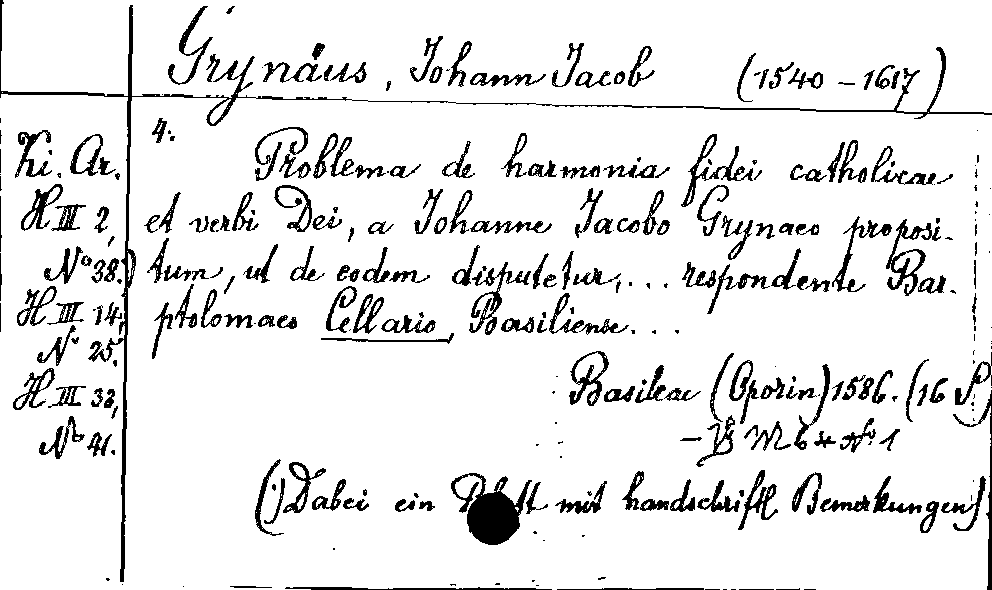 Grynäus, Johann Jacob (1540-1617)
4.
Ki. Ar.
H III 2,
No 38.)
H III 14,
No 25.
H III 32,
No 41.
Problema de harmonia fidei catholicae
et verbi Dei, a Johanne Jacobo Grynaeo proposi-
tum, ut de eodem disputetur, ... respondente Bar-
ptolomaeo Cellario, Basiliense...
Basileae (Oporin) 1586. (16 S.)
No 1
(·) Dabei ein Blatt mit handschriftl Bemerkungen).